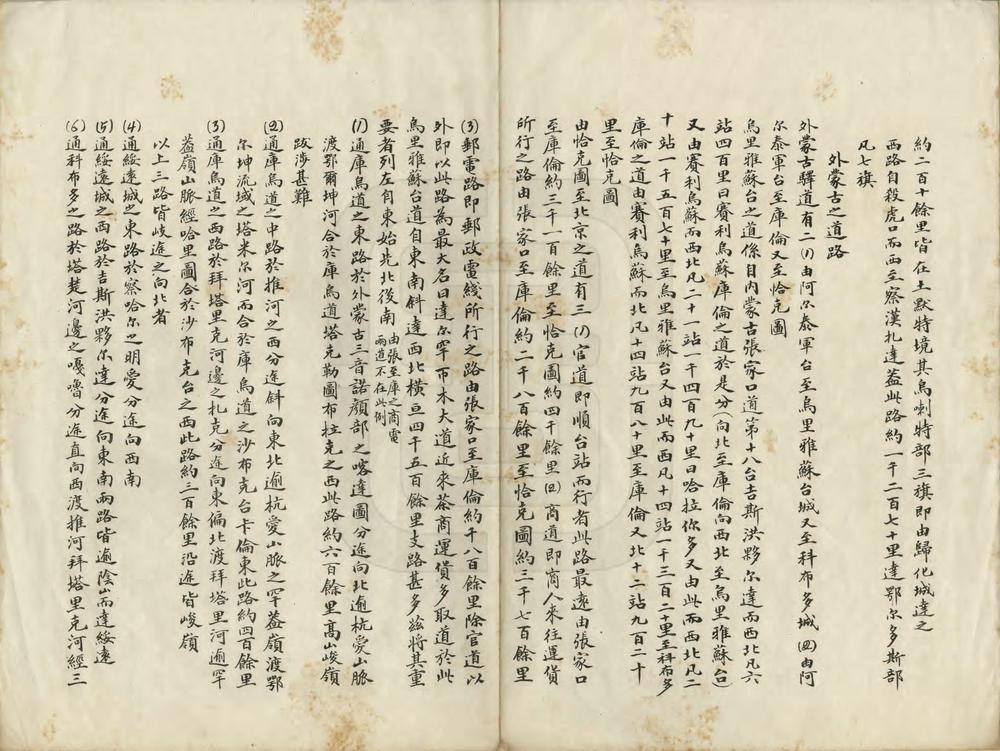 約二百十餘里皆在土默特境其烏喇特部三旗即由歸化城達之
西路自殺虎口而西至察漢扎達蓋此路約一千二百七十里達鄂尔多斯部
凡七旗
外蒙古之道路
外蒙古驛道有二(1)由阿尔泰軍台至烏里雅蘇台城又至科布多城(2)由阿
尔泰軍台至庫倫又至恰克圖
烏里雅蘇台之道係自內蒙古張家口道第十八台吉斯洪夥尔達而西北凡六
站四百里曰賽利烏蘇庫倫之道於是分(向北至庫倫向西北至烏里雅蘇台)
又由賽利烏蘇而西北凡二十一站一千四百九十里曰哈拉你多又由此而西北凡二
十站一千五百七十里至烏里雅蘇台又由此而西凡十四站一千三百二十里至科布多
庫倫之道由賽利烏蘇而北凡十四站九百八十里至庫倫又北十二站九百二十
里至恰克圖
由恰克圖至北京之道有三(1)官道即順台站而行者此路最遠由張家口
至庫倫約三千一百餘里至恰克圖約四千餘里(2)商道即商人來往運貨
所行之路由張家口至庫倫約二千八百餘里至恰克圖約三千七百餘里
(3)郵電路即郵政電綫所行之路由張家口至庫倫約千八百餘里除官道以
外即以此路為最大名曰達尔罕帀木大道近來茶商運貨多取道於此
烏里雅蘇台道自東南斜達西北橫亘四千五百餘里支路甚多茲將其重
要者列左自東始先北後南由張至庫之商電兩道不在此例
(1)通庫烏道之東路於外蒙古三音諾顏部之喀達圖分途向北逾杭愛山脈
渡鄂爾坤河合於庫烏道塔克勒圖布拉克之西此路約六百餘里高山峻嶺
跋涉甚難
(2)通庫烏道之中路於推河之西分途斜向東北逾杭愛山脈之罕蓋嶺渡鄂
尔坤流域之塔米尔河而合於庫烏道之沙布克台卡倫東此路約四百餘里
(3)通庫烏道之西路於拜塔里克河邊之札克分途向東偏北渡拜塔里河逾罕
蓋嶺山脈經哈里圖合於沙布克台之西此路約三百餘里沿途皆峻嶺
以上三路皆岐途之向北者
(4)通綏遠城之東路於察哈尔之明愛分途向西南
(5)通綏遠城之西路於吉斯洪夥尔達分途向東南兩路皆逾陰山而達綏遠
(6)通科布多之路於塔楚河邊之嘎嚕分途直向西渡推河拜塔里克河經三